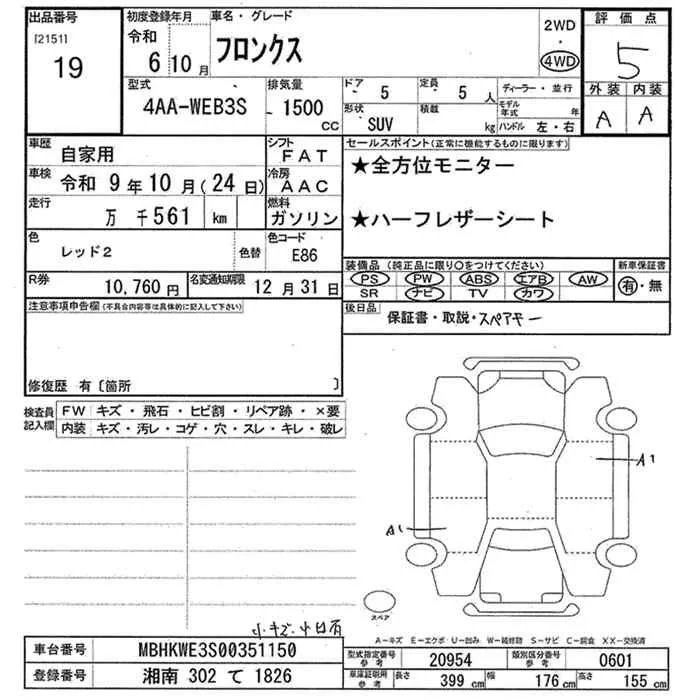 出品番号
[2151]
19
初度登録年月
令和
6 10月
車名・グレード
フロンクス
2WD
・
4WD
評価点
5
外装 内装
A A
型式
4AA-WEB3S
排気量
1500
cc
ドア
5
定員
5人
ディーラー・並行
モデル年式 年
形状
SUV
積載
kg
ハンドル 左・右
車歴
自家用
シフト
FAT
車検
令和 9年10月(24日)
冷房
AAC
走行
万 千561 km
燃料
ガソリン
色
レッド2
色替
色コード
E86
R券
10,760円
名変通知期限
12月31日
セールスポイント(正常に機能するものに限ります)
★全方位モニター
★ハーフレザーシート
装備品(純正品に限り○をつけてください)
新車保証書
PS PW ABS エアB AW
SR ナビ TV カワ
有・無
後日品
保証書・取説・スペアキー
注意事項申告欄(不具合内容等は具体的に記入して下さい)
修復歴 有〔箇所 〕
検査員記入欄
FW キズ・飛石・ヒビ割・リペア跡・×要
内装 キズ・汚レ・コゲ・穴・スレ・キレ・破レ
A1
A1
スペア
小キズ・小凹有
A-キズ E-エクボ U-凹み W-補修跡 S-サビ C-腐食 XX-交換済
車台番号
MBHKWE3S00351150
登録番号
湘南 302 て 1826
型式指定番号
参考
20954
類別区分番号
参考
0601
車庫証明用
参考
長さ
399 cm
幅
176 cm
高さ
155 cm